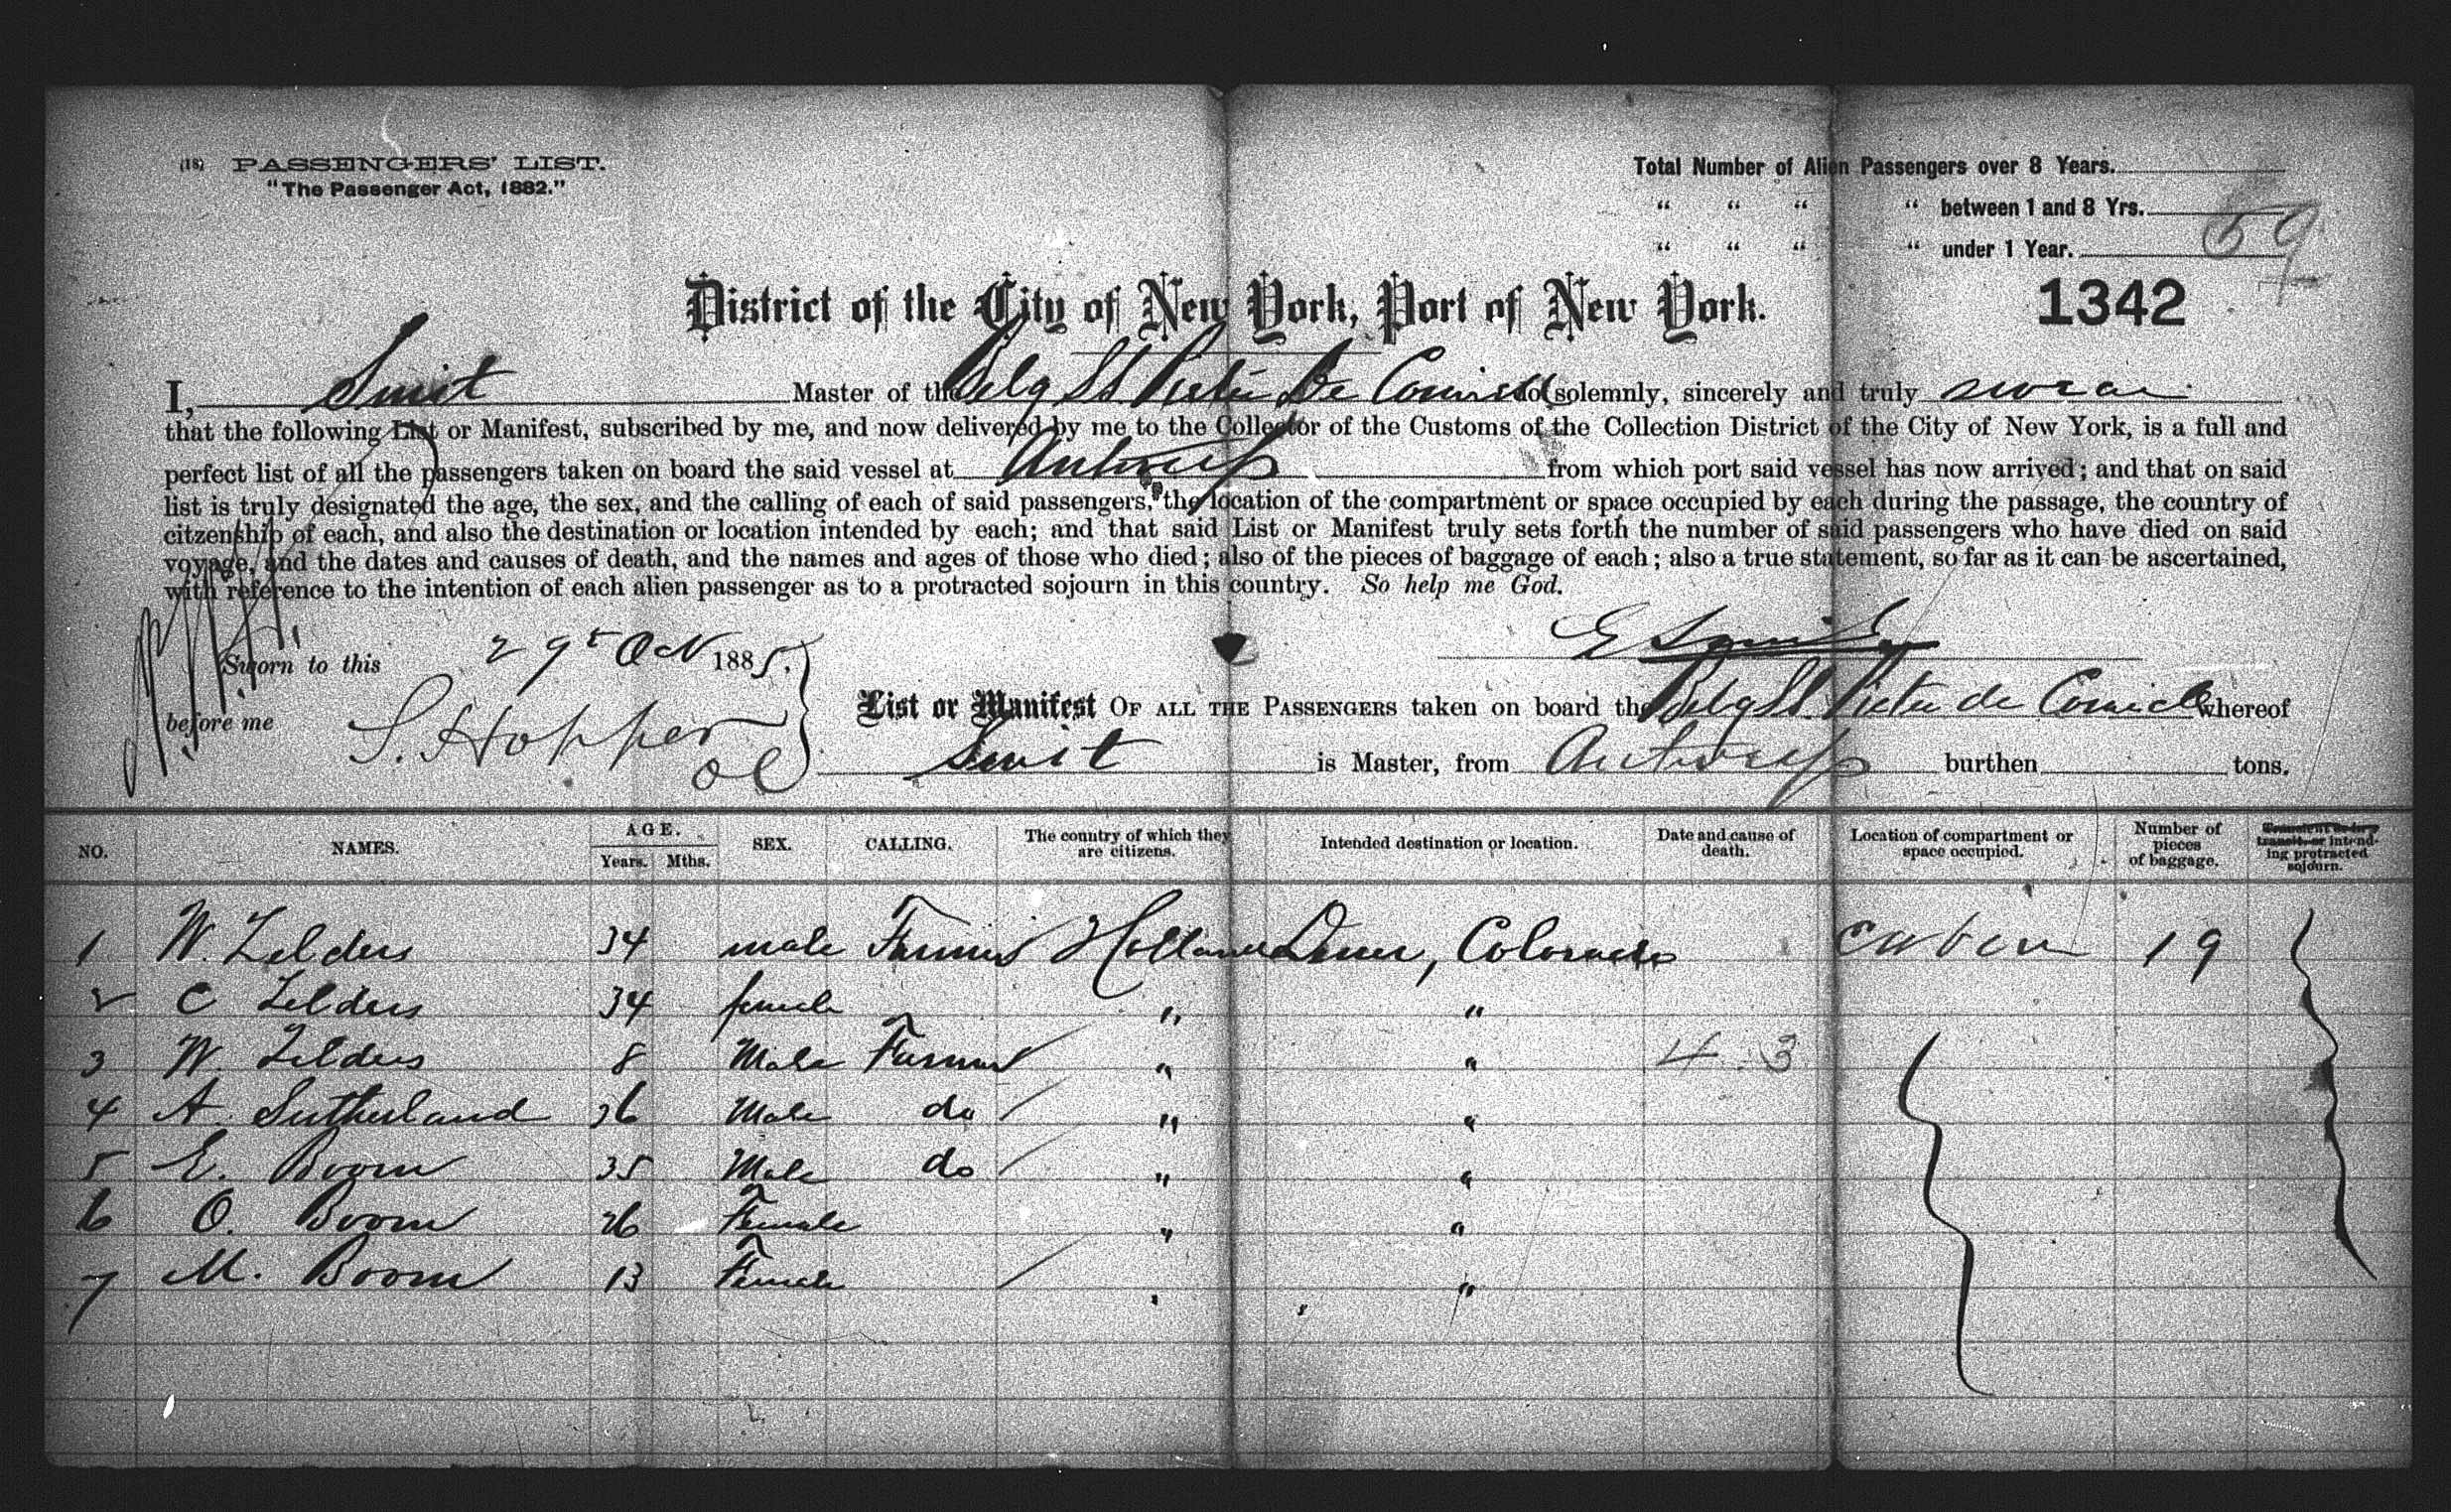 (18) PASSENGERS' LIST.
"The Passenger Act, 1882."
Total Number of Alien Passengers over 8 Years.
" " " " between 1 and 8 Yrs.
" " " " under 1 Year.
59
7
District of the City of New York, Port of New York.
1342
I, Smit Master of the Belg SS Pieter De Coninck do solemnly, sincerely and truly swear
that the following List or Manifest, subscribed by me, and now delivered by me to the Collector of the Customs of the Collection District of the City of New York, is a full and
perfect list of all the passengers taken on board the said vessel at Antwerp from which port said vessel has now arrived; and that on said
list is truly designated the age, the sex, and the calling of each of said passengers, the location of the compartment or space occupied by each during the passage, the country of
citzenship of each, and also the destination or location intended by each; and that said List or Manifest truly sets forth the number of said passengers who have died on said
voyage, and the dates and causes of death, and the names and ages of those who died; also of the pieces of baggage of each; also a true statement, so far as it can be ascertained,
with reference to the intention of each alien passenger as to a protracted sojourn in this country. So help me God.
Sworn to this 29t Oct 1885.
E Smit
before me S. Hopper
List or Manifest OF ALL THE PASSENGERS taken on board the Belg SS. Pieter de Coninck whereof
Smit is Master, from Antwerp burthen tons.
NO. NAMES. AGE. Years. Mths. SEX. CALLING. The country of which they are citizens. Intended destination or location. Date and cause of death. Location of compartment or space occupied. Number of pieces of baggage. transit, or intending protracted sojourn.
1 W. Zelders 34 male Farmer Holland Denver, Colorado Cabin 19
2 C Zelders 34 female " "
3 W. Zelders 8 Male Farmer " " 4 3
4 A. Sutherland 36 Male do " "
5 E. Boom 35 Male do " "
6 O. Boom 26 Female " "
7 M. Boom 13 Female "